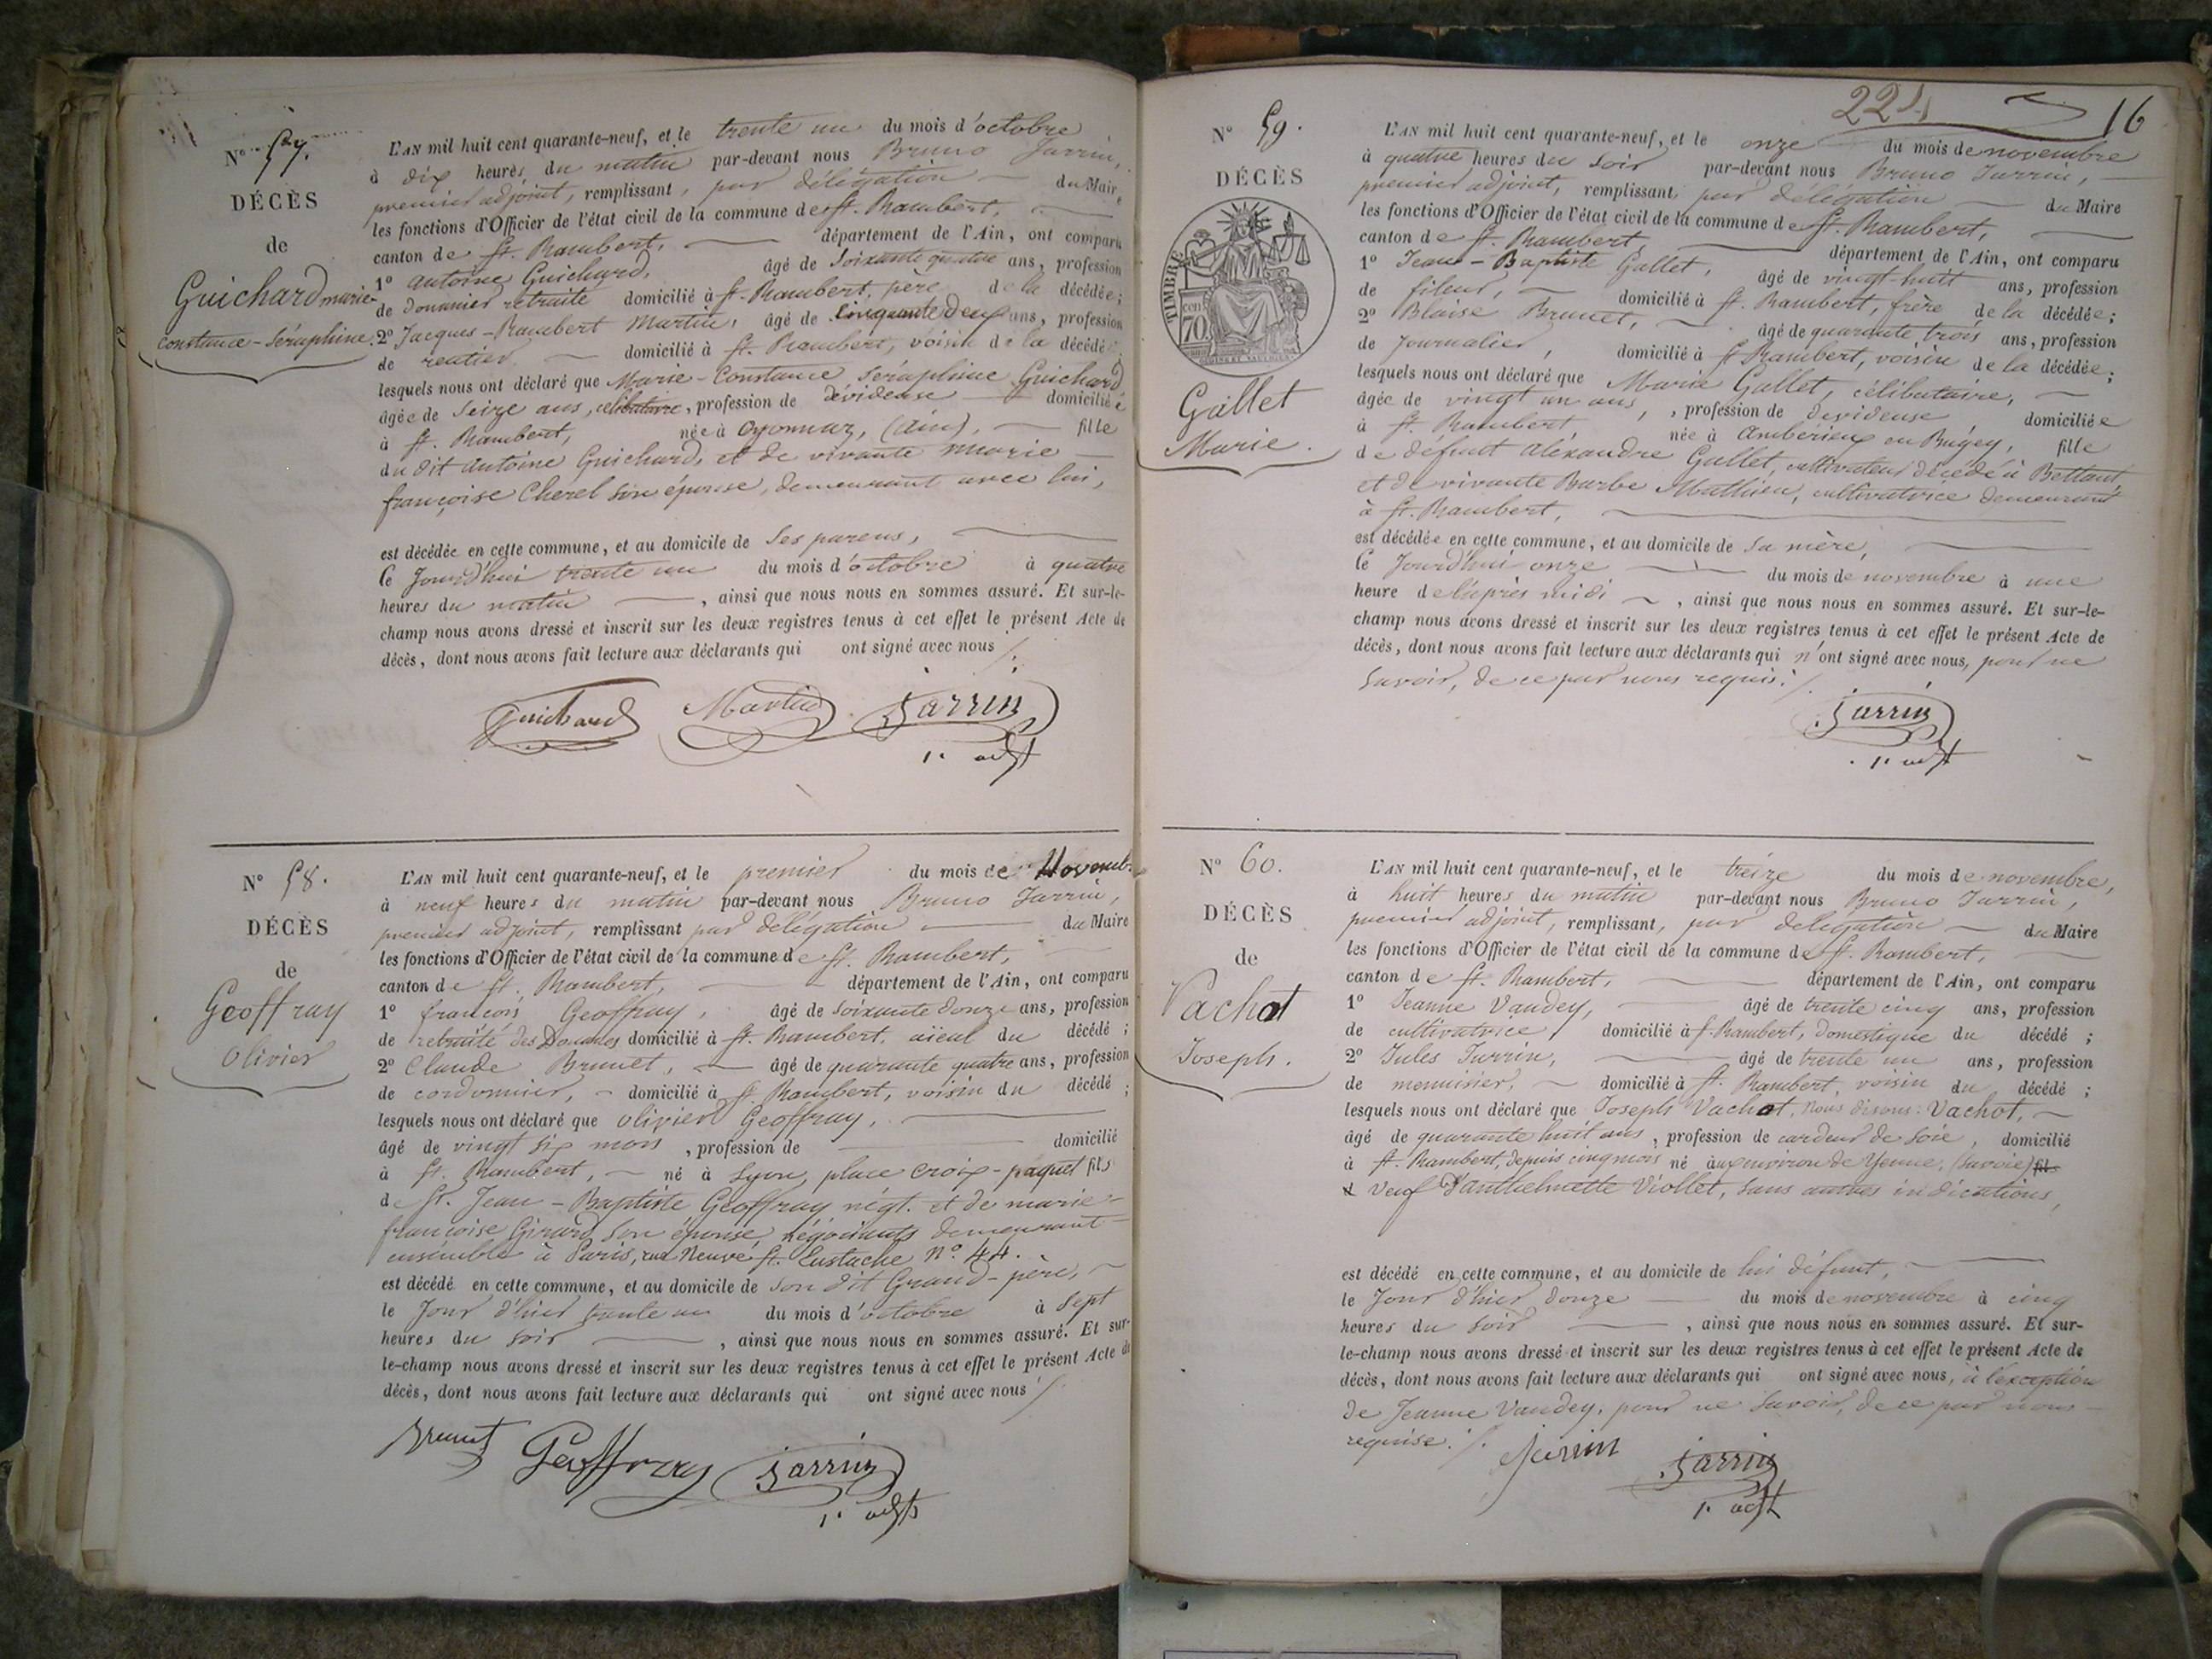 N° 57.
DÉCÈS
de
Guichard marie-
constance-séraphine.
L'AN mil huit cent quarante-neuf, et le trente un du mois d'octobre
à dix heures du matin par-devant nous Bruno Jarrin,
premier adjoint, remplissant, par délégation du Maire,
les fonctions d'Officier de l'état civil de la commune de St. Rambert,
canton de St. Rambert, département de l'Ain, ont comparu
1° antoine Guichard, âgé de soixante quatre ans, profession
de Douanier retraité domicilié à St. Rambert, père de la décédée;
2° Jacques-Rambert Martin, âgé de Cinquante Deux ans, profession
de rentier domicilié à St. Rambert, voisin de la décédé
lesquels nous ont déclaré que Marie-Constance séraphine Guichard,
âgée de seize ans, célibataire, profession de dévideuse domiciliée
à St. Rambert, née à Oyonnax, (Ain), fille
du dit antoine Guichard, et de vivante marie
françoise Cherel son épouse, demeurant avec lui,
est décédée en cette commune, et au domicile de ses parens,
Ce Jourd'hui trente un du mois d'octobre à quatre
heures du matin, ainsi que nous nous en sommes assuré. Et sur-le-
champ nous avons dressé et inscrit sur les deux registres tenus à cet effet le présent Acte de
décès, dont nous avons fait lecture aux déclarants qui ont signé avec nous ./.
Guichard Martin Jarrin
1er adjt
N° 58.
DÉCÈS
de
Geoffray
Olivier
L'AN mil huit cent quarante-neuf, et le premier du mois de Novemb.
à neuf heures du matin par-devant nous Bruno Jarrin,
premier adjoint, remplissant par délégation du Maire
les fonctions d'Officier de l'état civil de la commune de St. Rambert,
canton de St. Rambert, département de l'Ain, ont comparu
1° françois Geoffray, âgé de soixante douze ans, profession
de retraité des Douanes domicilié à St. Rambert, aïeul du décédé;
2° Claude Brunet, âgé de quarante quatre ans, profession
de cordonnier, domicilié à St. Rambert, voisin du décédé;
lesquels nous ont déclaré que olivier Geoffray,
âgé de vingt six mois, profession de domicilié
à St. Rambert, né à Lyon, place croix-paquet fils
de St. Jean-Baptiste Geoffray négt. et de marie-
françoise Girard son épouse, négociants demeurant
ensemble à Paris, rue Neuve St. Eustache N° 44.
est décédé en cette commune, et au domicile de son dit Grand-père,
le Jour d'hier trente un du mois d'octobre à sept
heures du soir, ainsi que nous nous en sommes assuré. Et sur-
le-champ nous avons dressé et inscrit sur les deux registres tenus à cet effet le présent Acte de
décès, dont nous avons fait lecture aux déclarants qui ont signé avec nous ./.
Brunet Geoffray Jarrin
1er adjt
224 16
N° 59.
DÉCÈS
TIMBRE
70
Gallet
Marie.
L'AN mil huit cent quarante-neuf, et le onze du mois de novembre
à quatre heures du soir par-devant nous Bruno Jarrin,
premier adjoint, remplissant, par délégation du Maire
les fonctions d'Officier de l'état civil de la commune de St. Rambert,
canton de St. Rambert, département de l'Ain, ont comparu
1° Jean-Baptiste Gallet, âgé de vingt-huit ans, profession
de fileur, domicilié à St. Rambert, frère de la décédée;
2° Blaise Brunet, âgé de quarante trois ans, profession
de Journalier, domicilié à St. Rambert, voisin de la décédée;
lesquels nous ont déclaré que Marie Gallet, célibataire,
âgée de vingt un ans, profession de devideuse domiciliée
à St. Rambert née à Ambérieux en Bugey, fille
de défunt Aléxandre Gallet, cultivateur décédé à Bettant,
et de vivante Barbe Mathieu, cultivatrice demeurant
à St. Rambert,
est décédée en cette commune, et au domicile de sa mère,
Ce Jourd'hui onze du mois de novembre à une
heure de l'après midi, ainsi que nous nous en sommes assuré. Et sur-le-
champ nous avons dressé et inscrit sur les deux registres tenus à cet effet le présent Acte de
décès, dont nous avons fait lecture aux déclarants qui n'ont signé avec nous, pour ne
savoir, de ce par nous requis. ./.
Jarrin
1er adjt
N° 60.
DÉCÈS
de
Vachot
Joseph.
L'AN mil huit cent quarante-neuf, et le treize du mois de novembre,
à huit heures du matin par-devant nous Bruno Jarrin,
premier adjoint, remplissant, par délégation du Maire
les fonctions d'Officier de l'état civil de la commune de St. Rambert,
canton de St. Rambert, département de l'Ain, ont comparu
1° Jeanne Vaudey, âgé de trente cinq ans, profession
de cultivatrice, domicilié à St. Rambert, domestique du décédé;
2° Jules Jarrin, âgé de trente un ans, profession
de menuisier, domicilié à St. Rambert, voisin du décédé;
lesquels nous ont déclaré que Joseph Vachot, nous disons: Vachot,
âgé de quarante huit ans, profession de cardeur de soie, domicilié
à St. Rambert, depuis cinq mois né aux environ de Yenne, (Savoie) fils
& veuf d'anthelmette Viollet, sans autres indications,
est décédé en cette commune, et au domicile de lui défunt,
le Jour d'hier douze du mois de novembre à cinq
heures du soir, ainsi que nous nous en sommes assuré. Et sur-
le-champ nous avons dressé et inscrit sur les deux registres tenus à cet effet le présent Acte de
décès, dont nous avons fait lecture aux déclarants qui ont signé avec nous, à l'exception
de Jeanne Vaudey, pour ne savoir, de ce par nous
requise. ./. Jarrin Jarrin
1er adjt